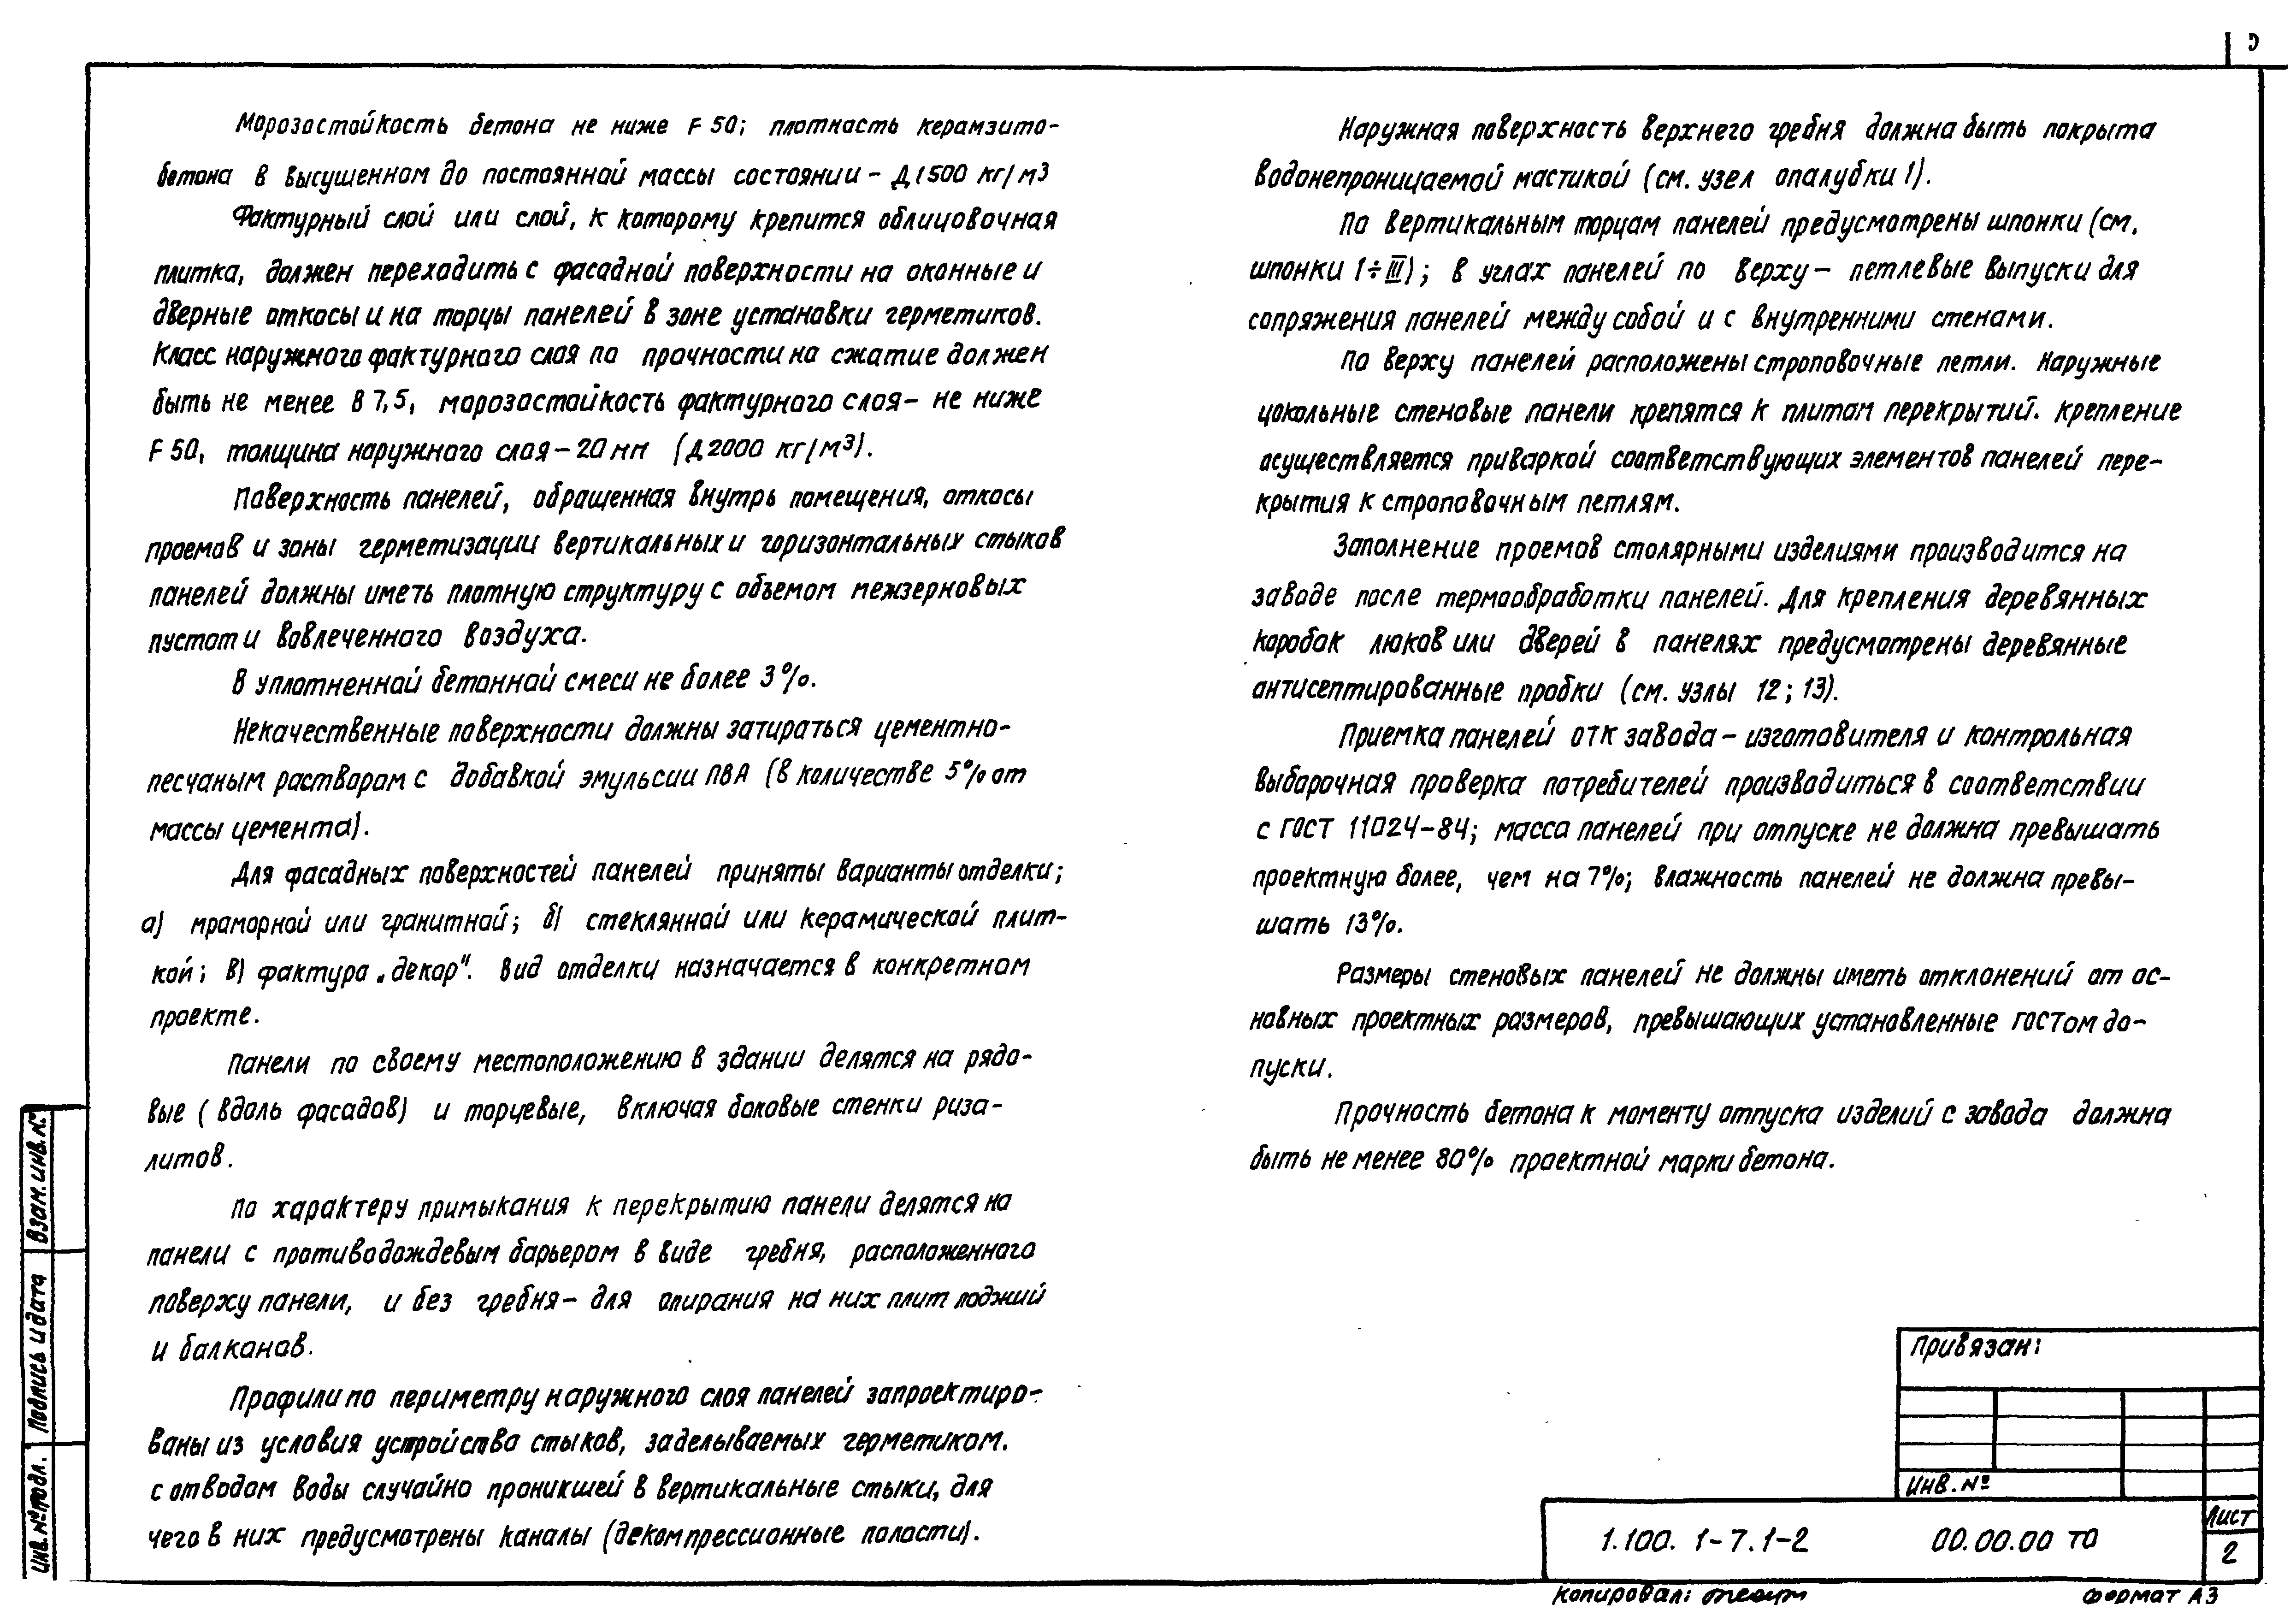 Морозостойкость бетона не ниже F 50; плотность керамзито-
бетона в высушенном до постоянной массы состоянии – Д 1500 кг/м3
Фактурный слой или слой, к которому крепится облицовочная
плитка, должен переходить с фасадной поверхности на оконные и
дверные откосы и на торцы панелей в зоне установки герметиков.
Класс наружного фактурного слоя по прочности на сжатие должен
быть не менее В 7,5, морозостойкость фактурного слоя – не ниже
F 50, толщина наружного слоя – 20 мм (Д 2000 кг/м3).
Поверхность панелей, обращенная внутрь помещения, откосы
проемов и зоны герметизации вертикальных и горизонтальных стыков
панелей должны иметь плотную структуру с объемом межзерновых
пустот и вовлеченного воздуха.
В уплотненной бетонной смеси не более 3%.
Некачественные поверхности должны затираться цементно-
песчаным раствором с добавкой эмульсии ПВА (в количестве 5% от
массы цемента).
Для фасадных поверхностей панелей приняты варианты отделки;
а) мраморной или гранитной; б) стеклянной или керамической плит-
кой; в) фактура „декор". Вид отделки назначается в конкретном
проекте.
Панели по своему местоположению в здании делятся на рядо-
вые (вдоль фасадов) и торцевые, включая боковые стенки риза-
литов.
По характеру примыкания к перекрытию панели делятся на
панели с противодождевым барьером в виде гребня, расположенного
поверху панели, и без гребня – для опирания на них плит лоджий
и балконов.
Профили по периметру наружного слоя панелей запроектиро-
ваны из условия устройства стыков, заделываемых герметиком.
с отводом воды случайно проникшей в вертикальные стыки, для
чего в них предусмотрены каналы (декомпрессионные полости).
Наружная поверхность верхнего гребня должна быть покрыта
водонепроницаемой мастикой (см. узел опалубки 1).
По вертикальным торцам панелей предусмотрены шпонки (см.
шпонки I÷III); в углах панелей по верху – петлевые выпуски для
сопряжения панелей между собой и с внутренними стенами.
По верху панелей расположены строповочные петли. Наружные
цокольные стеновые панели крепятся к плитам перекрытий. Крепление
осуществляется приваркой соответствующих элементов панелей пере-
крытия к строповочным петлям.
Заполнение проемов столярными изделиями производится на
заводе после термообработки панелей. Для крепления деревянных
коробок люков или дверей в панелях предусмотрены деревянные
антисептированные пробки (см. узлы 12; 13).
Приемка панелей ОТК завода – изготовителя и контрольная
выборочная проверка потребителей производиться в соответствии
с ГОСТ 11024-84; масса панелей при отпуске не должна превышать
проектную более, чем на 7%; влажность панелей не должна превы-
шать 13%.
Размеры стеновых панелей не должны иметь отклонений от ос-
новных проектных размеров, превышающих установленные гостом до-
пуски.
Прочность бетона к моменту отпуска изделий с завода должна
быть не менее 80% проектной марки бетона.
Взам. инв. №
Подпись и дата
Инв. № подл.
Привязан:
Инв. №
1.100. 1-7. 1-2 00.00.00 ТО
Лист
2
Копировал:
Формат А3